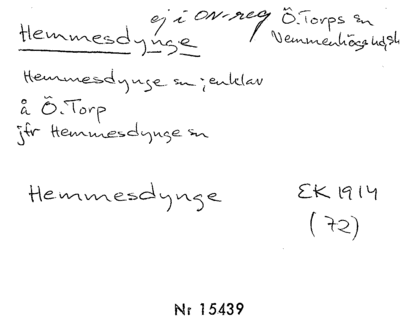 ej i ON-reg Ö.Torps sn
Hemmesdynge Vemmenhögs hd, Sk
Hemmesdynge sn; enklav
å Ö.Torp
jfr Hemmesdynge sn
Hemmesdynge EK 1914
(72)
Nr 15439